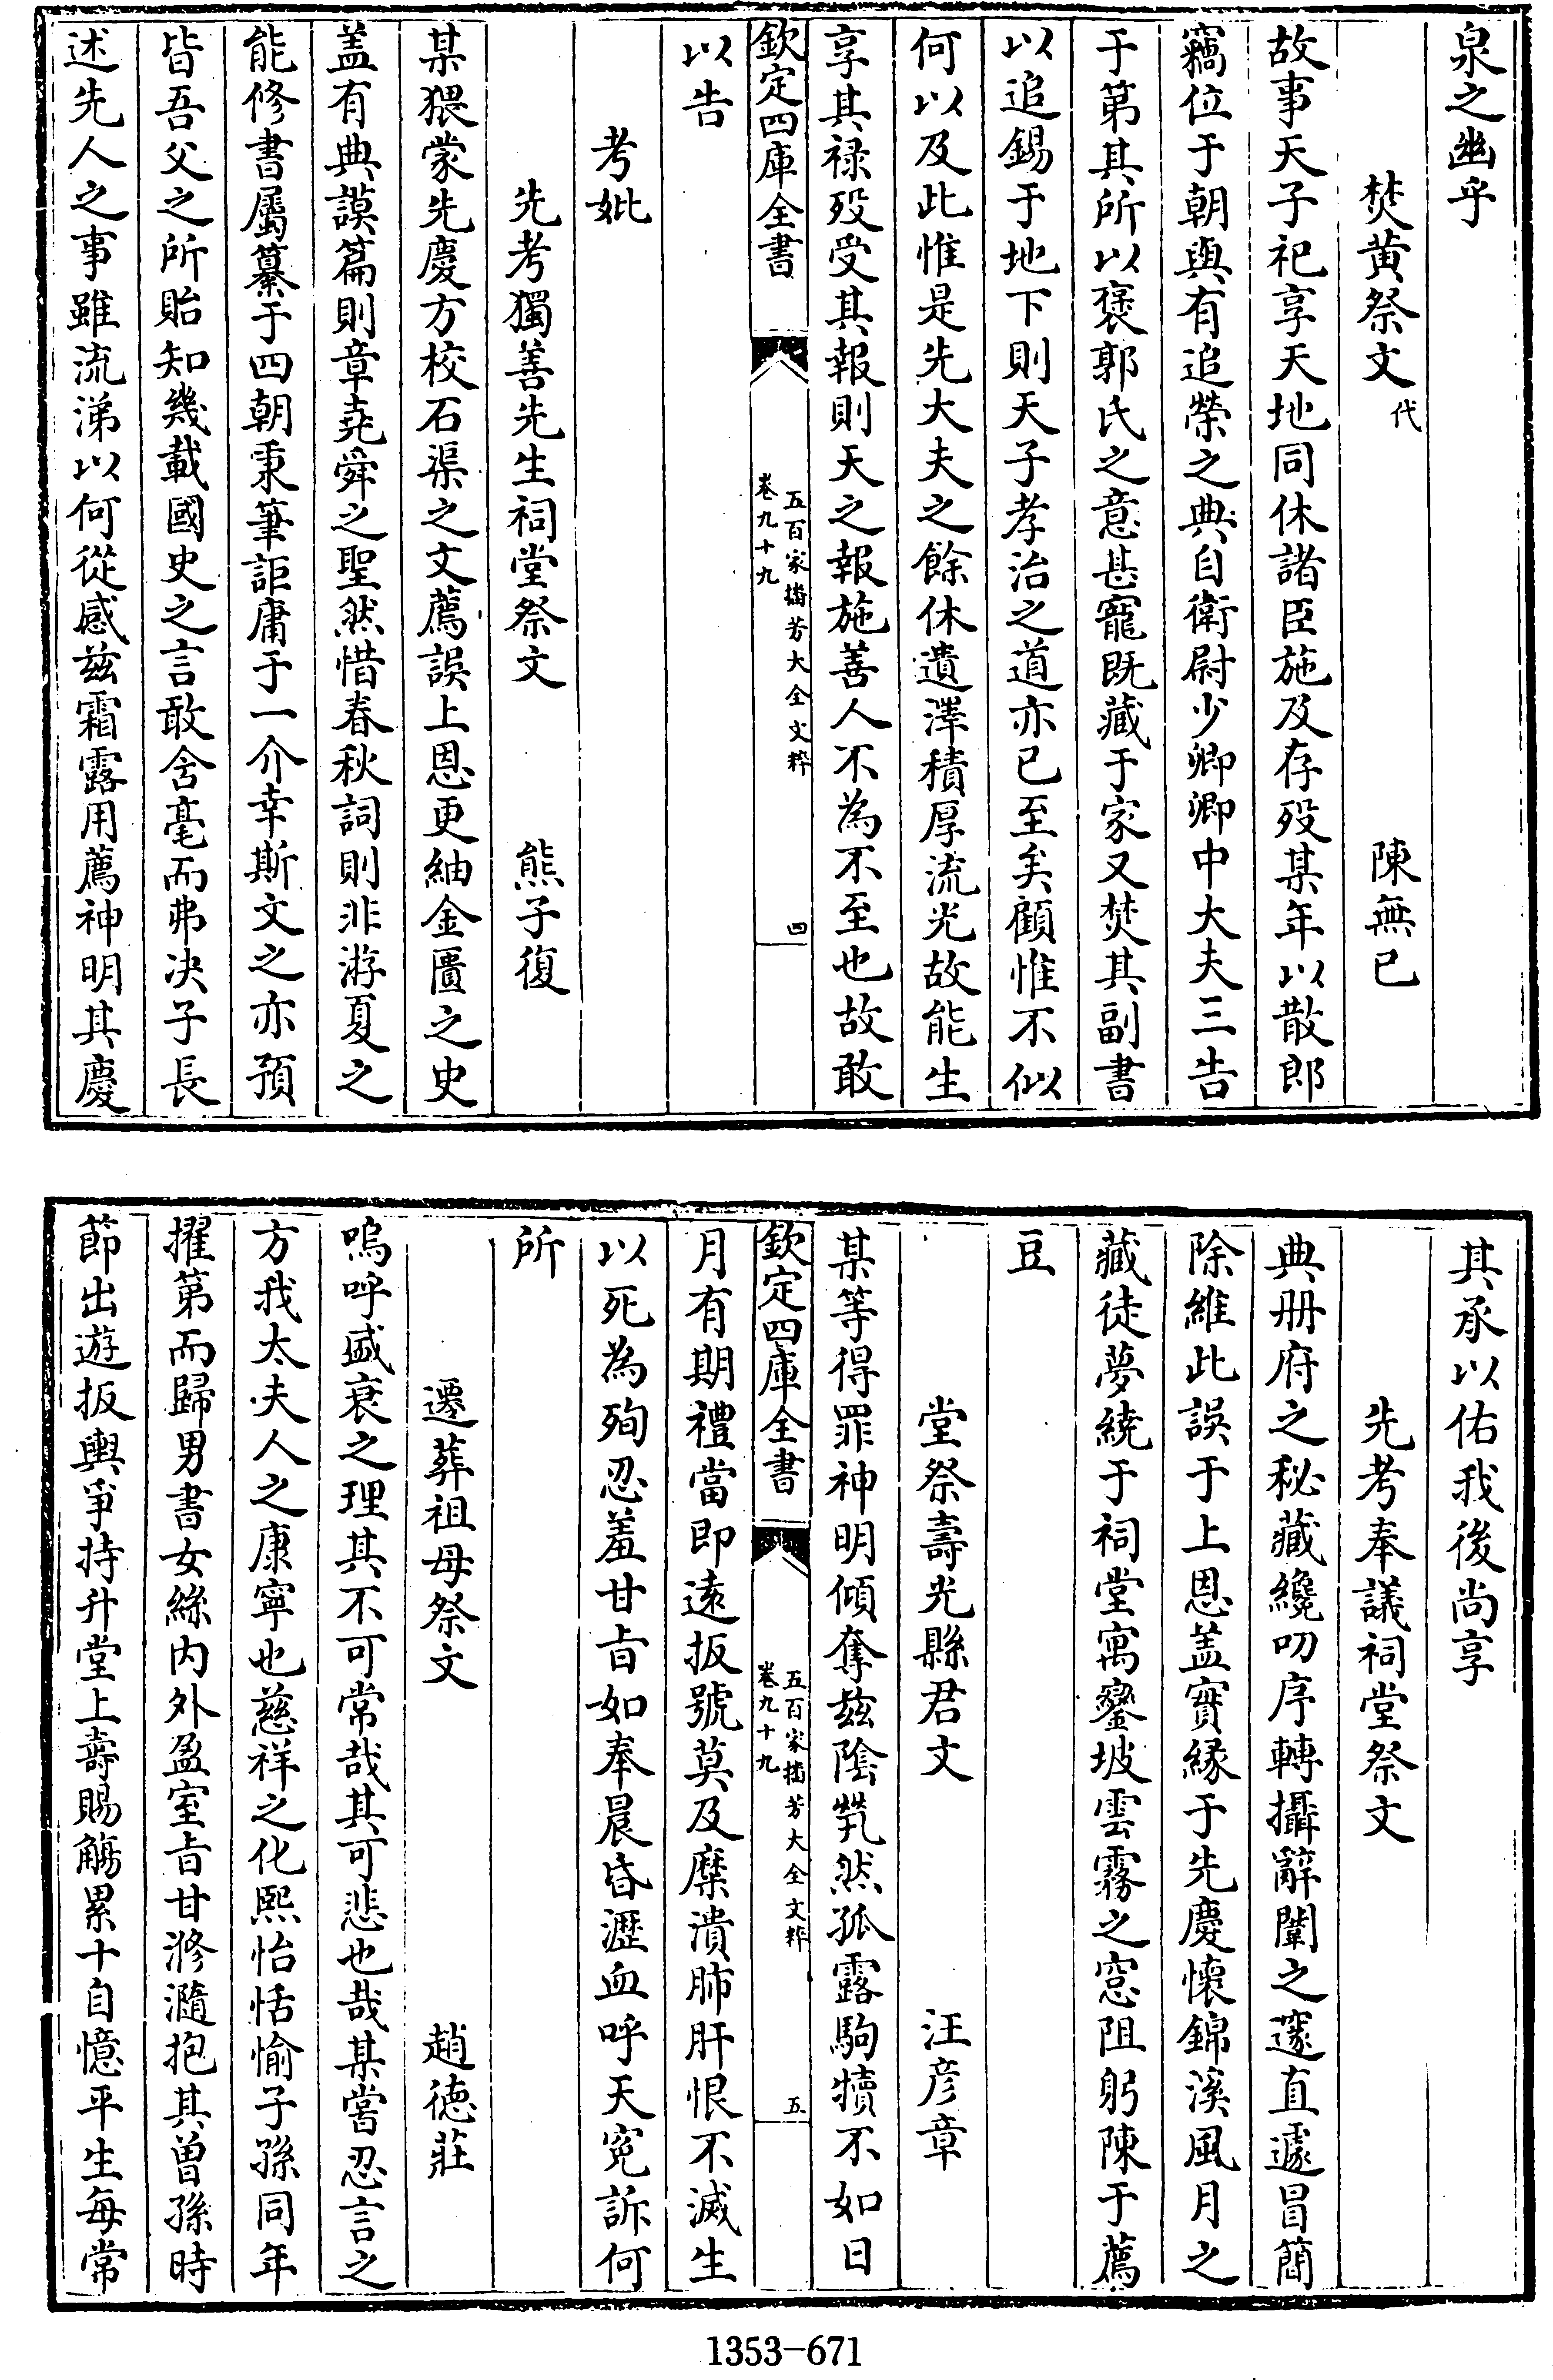 泉之幽乎
焚黄祭文代 陳無已
故事天子祀享天地同休諸臣施及存殁某年以散郎
竊位于朝與有追榮之典自衛尉少卿卿中大夫三告
于第其所以褒郭氏之意甚寵既藏于家又焚其副書
以追錫于地下則天子孝治之道亦已至矣顧惟不似
何以及此惟是先大夫之餘休遺澤積厚流光故能生
享其禄殁受其報則天之報施善人不為不至也故敢
欽定四庫全書 五百家播芳大全文粹 卷九十九 四
以告
考妣
先考獨善先生祠堂祭文 熊子復
某猥蒙先慶方校石渠之文薦誤上恩更紬金匱之史
盖有典謨篇則章堯舜之聖然惜春秋詞則非游夏之
能修書屬纂于四朝秉筆詎庸于一介幸斯文之亦預
皆吾父之所貽知幾載國史之言敢舍毫而弗决子長
述先人之事雖流涕以何從感兹霜露用薦神明其慶
其承以佑我後尚享
先考奉議祠堂祭文
典册府之秘藏纔叨序轉攝辭闈之邃直遽冒簡
除維此誤于上恩盖實緣于先慶懷錦溪風月之
藏徒夢繞于祠堂寓鑾坡雲霧之窓阻躬陳于薦
豆
堂祭壽光縣君文 汪彦章
某等得罪神明傾奪兹陰煢然孤露駒犢不如日
欽定四庫全書 五百家播芳大全文粹 卷九十九 五
月有期禮當即遠扳號莫及糜潰肺肝恨不滅生
以死為殉忍羞甘旨如奉晨昏瀝血呼天寃訴何
所
遷葬祖母祭文 趙德莊
嗚呼盛衰之理其不可常哉其可悲也哉某嘗忍言之
方我太夫人之康寧也慈祥之化熙怡恬愉子孫同年
擢第而歸男書女絲内外盈室旨甘滫瀡抱其曾孫時
節出遊扳輿爭持升堂上壽賜觴累十自憶平生每常
1353-671